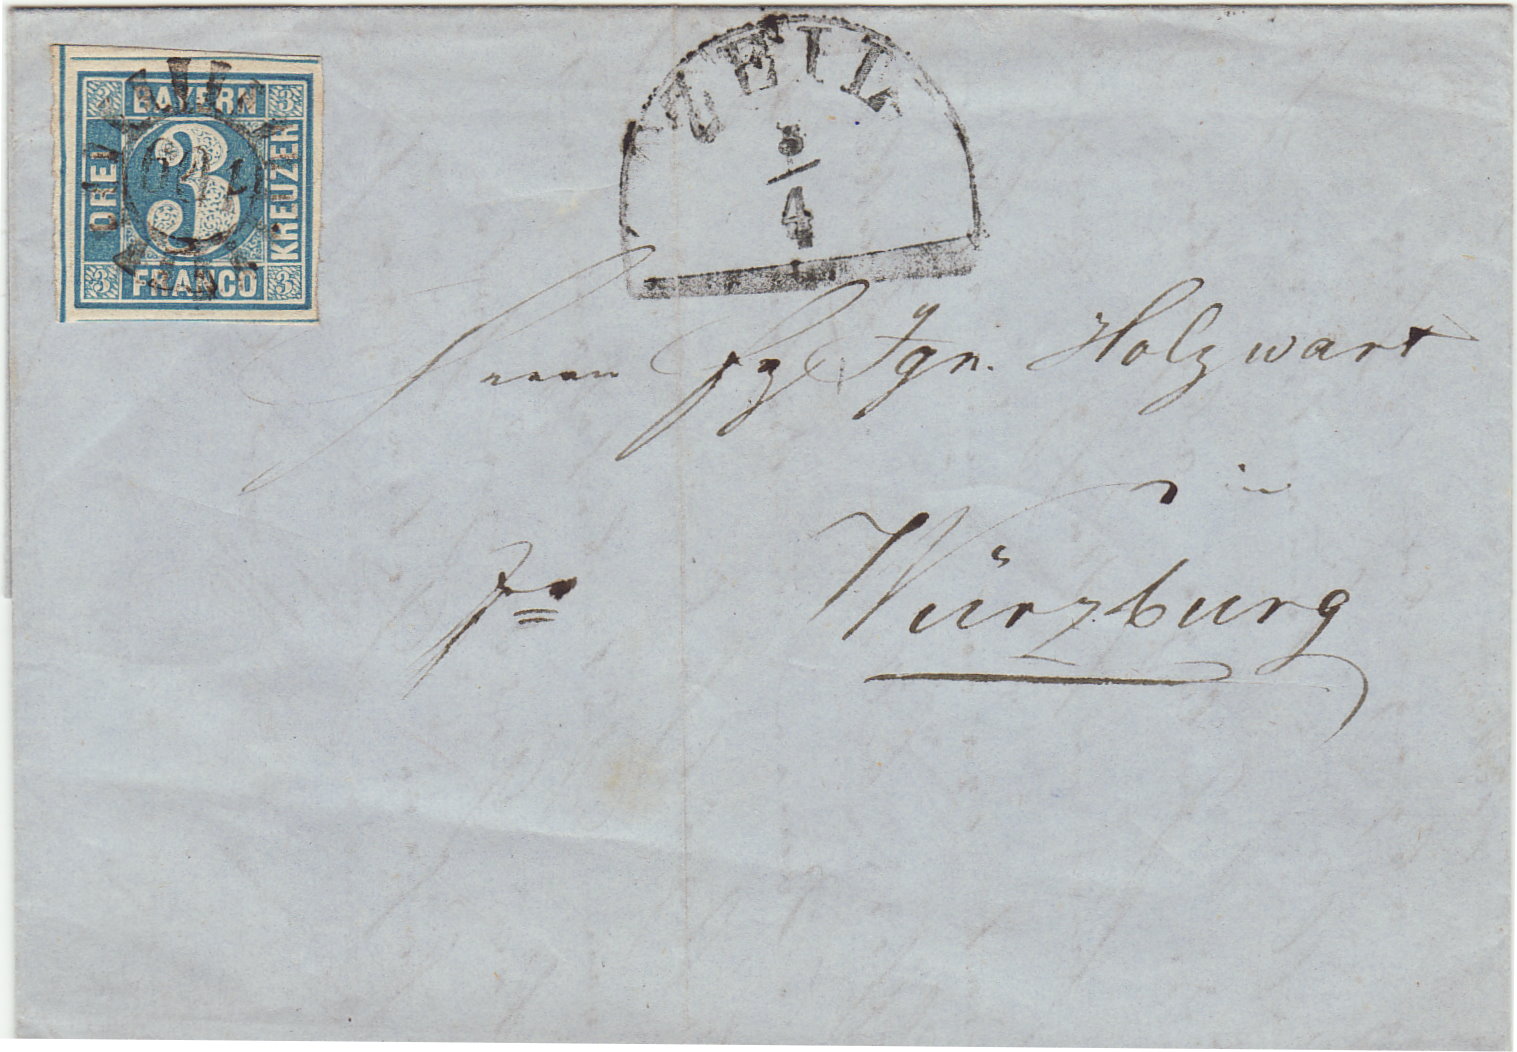 BAYERN
DREI
KREUZER
3
FRANCO
3 3 3 3
ZEIL
3
4
Herrn Ign. Holzwart
in
Würzburg